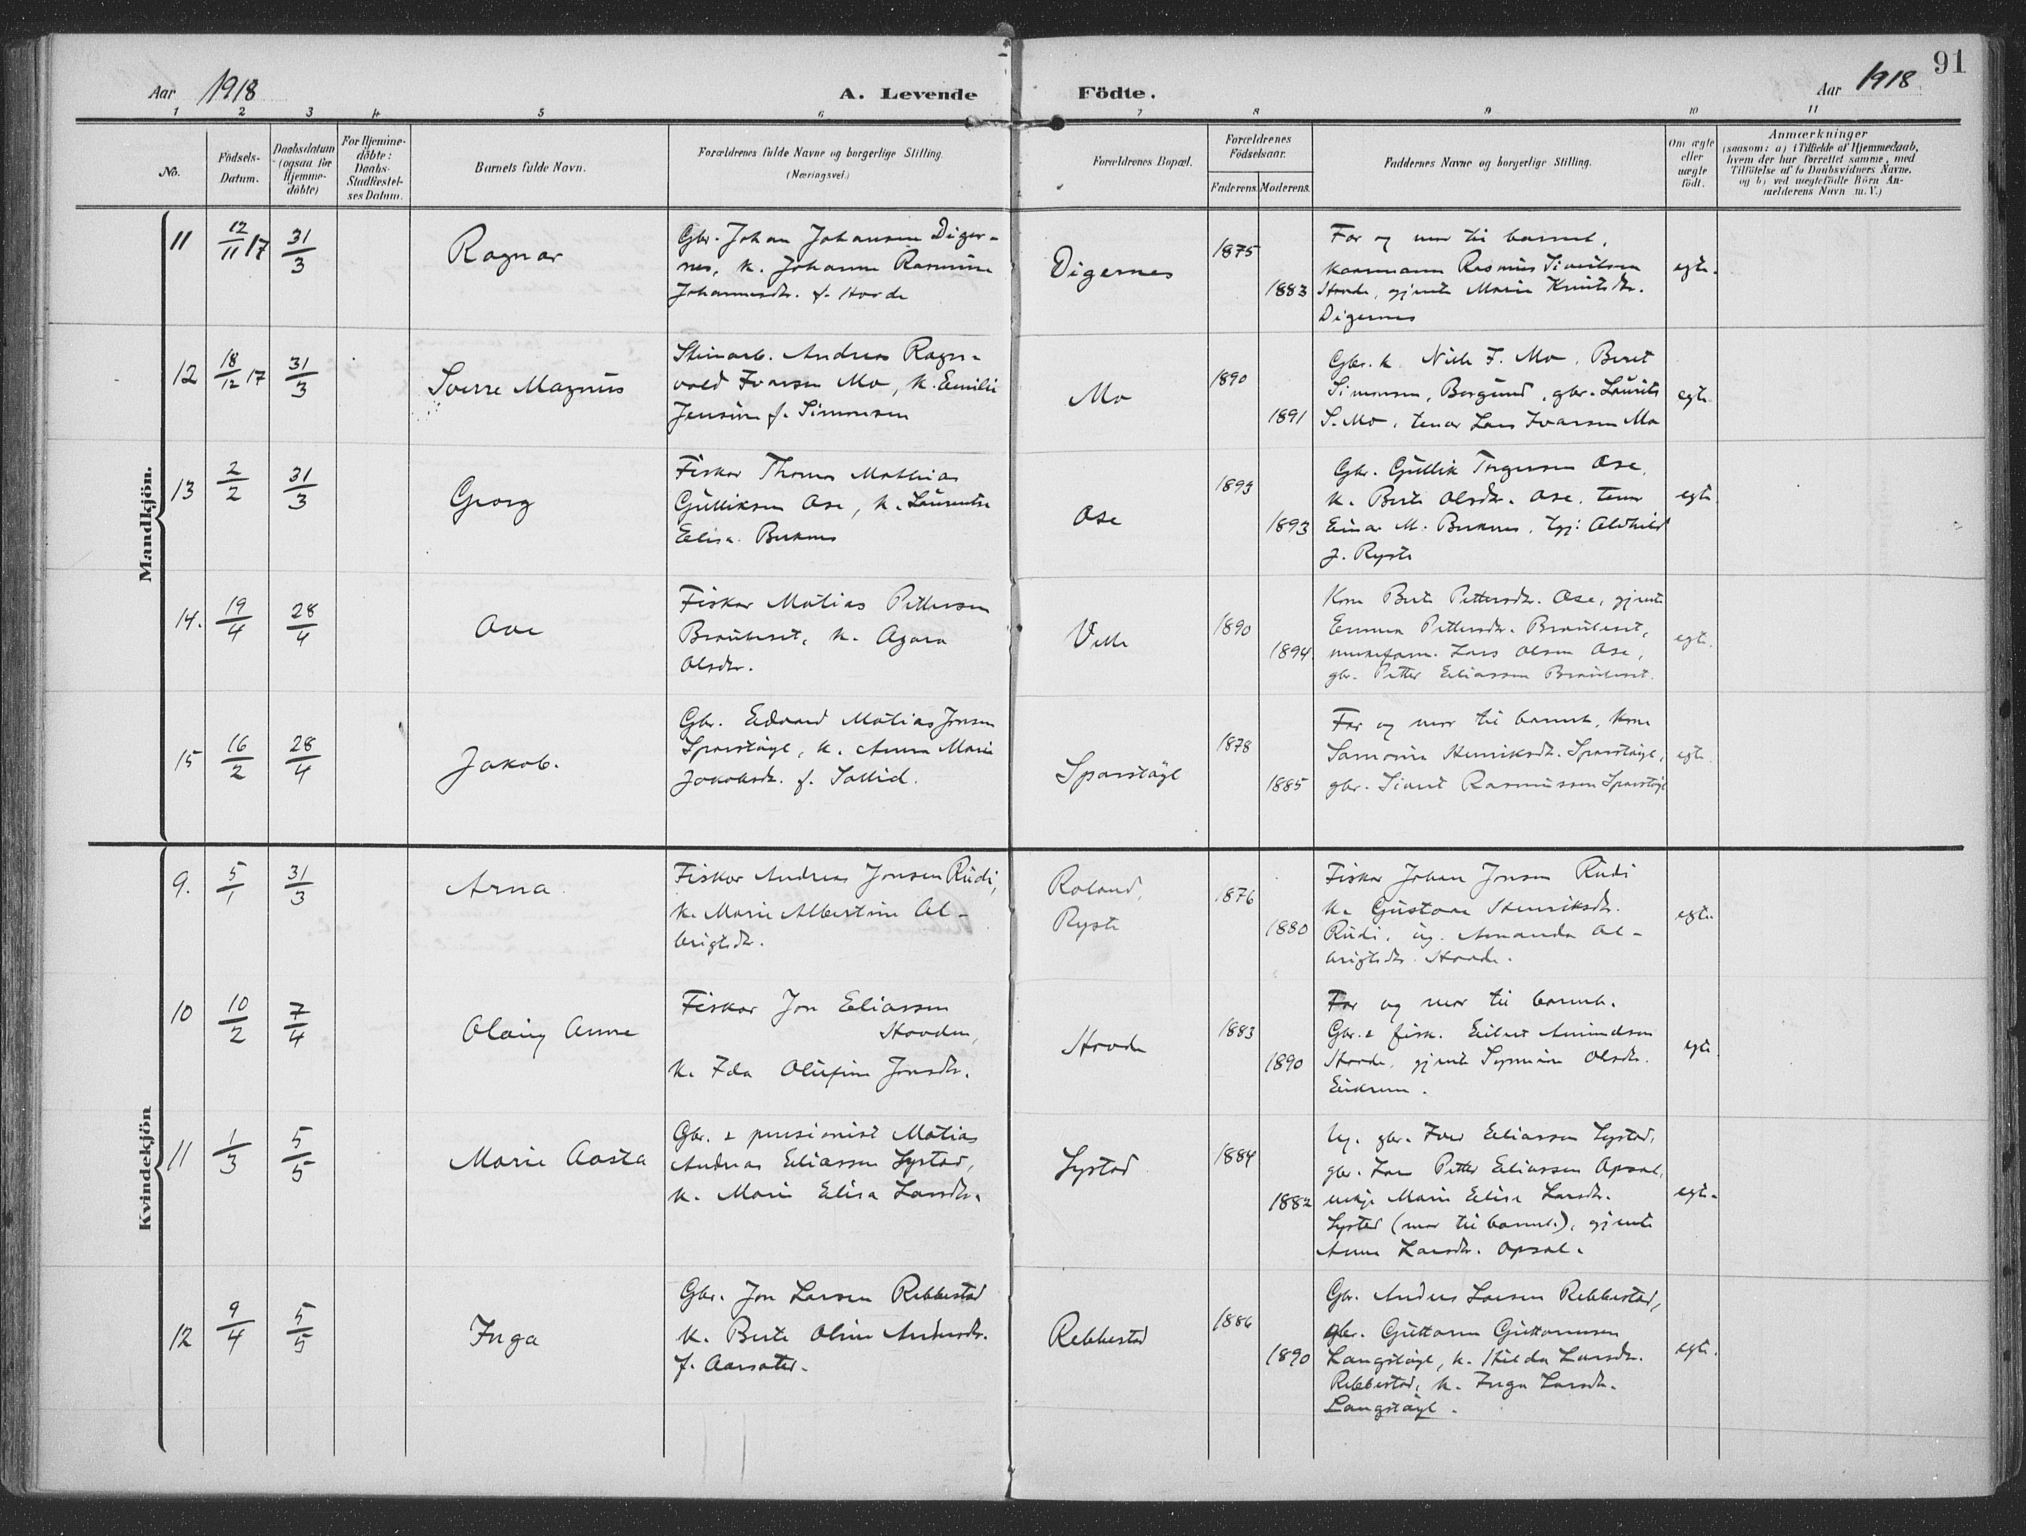 91
Aar 1918
A. Levende Födte.
Aar 1918
1 2 3 4 5 6 7 8 9 10 11
No.
Födsels-
Datum.
Daabsdatum
(ogsaa for
Hjemme-
döbte)
For Hjemme-
döbte:
Daabs-
Stadfæstel-
ses Datum.
Barnets fulde Navn.
Forældrenes fulde Navne og borgerlige Stilling.
(Næringsvei.)
Forældrenes Bopæl.
Forældrenes
Födselsaar.
Faderens.
Moderens.
Faddernes Navne og borgerlige Stilling.
Om ægte
eller
uægte
födt.
Anmærkninger
(saasom: a) i Tilfælde af Hjemmedaab,
hvem der har forrettet samme, med
Tilföielse af to Daabsvidners Navne.
og b) ved uægtefödte Börn An-
mælderens Navn m. V.)
Mandkjön.
11
12/11 17
31/3
Ragnar
Gbr. Johan Johansen Diger-
nes, k. Johanne Rasmine
Johannesdtr. f. Hovde
Digernes
1875
1883
Far og mor til barnet,
kaarmann Rasmus Sivertsen
Hovde, gjente Marie Knutsdtr.
Digernes
egte.
12
18/12 17
31/3
Sverre Magnus
Stenarb. Andreas Ragn-
vald Ivarsen Mo, k. Emilie
Jensine f. Simonsen
Mo
1890
1891
Gbr. k. Nils I. Mo, Beret
Simonsen, Borgund, gbr. Laurits
S. Mo, tenar Lars Ivarsen Mo
egte
13
2/2
31/3
Georg
Fiskar Thomas Mathias
Gulliksen Ose, k. Laurentse
Elisa
Ose
1893
1893
Gbr. Gullik Torgersen Ose,
k. Berte Olsdtr. Ose, tenar
Einar M.
J. Ryste
egte.
14.
19/4
28/4
Ove
Fiskar Matias Pettersen
Brauteset, k. Agara
Olsdtr.
Velle
1890
1894
Kone Berte Pettersdtr. Ose, gjente
Emma Pettersdtr. Brauteset,
Lars Olsen Ose,
gbr. Petter Eliassen Brauteset.
egte.
15
16/2
28/4
Jakob.
Gbr. Edvard Matias Jonsen
Sparstøyl, k. Anna Marie
Jakobsdtr. f. Sollid.
Sparstøyl
1878
1885
Far og mor til barnet, kone
Samoine Henriksdtr. Sparstøyl,
gbr. Sivert Rasmussen Sparstøyl
egte.
Kvindekjön
9.
5/1
31/3
Arna
Fiskar Andreas Jonsen Rudi,
k. Marie Albertine Al-
brigtsdtr.
Roland,
Ryste
1876
1880
Fiskar Johan Jonsen Rudi
k. Gustava Henriksdtr.
Rudi, ug. Amanda Al-
brigtsdtr. Hovde.
egte.
10
10/2
7/4
Olaug Anne
Fiskar Jon Eliassen
Hovden,
k. Ida Olufine Jonsdtr.
Hovde
1883
1890
Far og mor til barnet.
Gbr. & fisk. Eilert Amundsen
Hovde, gjente Synnøve Olsdtr.
egte.
11
1/3
5/5
Marie Aasta
Gbr. & pensionist Matias
Andreas Eliassen Systad,
k. Marie Elisa Larsdtr.
Systad
1884
1882
Ug. gbr. Iver Eliassen Systad,
gbr. Jon Petter Eliassen Opsal,
Marie Elisa Larsdtr.
Systad (mor til barnet), gjente
Anne Larsdtr. Opsal.
egte.
12
9/4
5/5
Inga
Gbr. Jon Larsen Rebbestad
k. Berte Oline Andersdtr.
f. Aarsater.
Rebbestad
1886
1890
Gbr. Anders Larsen Rebbestad,
gbr. Guttorm Guttormsen
Langstøyl, k. Hilda Larsdtr.
Rebbestad, k. Inga Larsdtr.
Langstøyl.
egte.